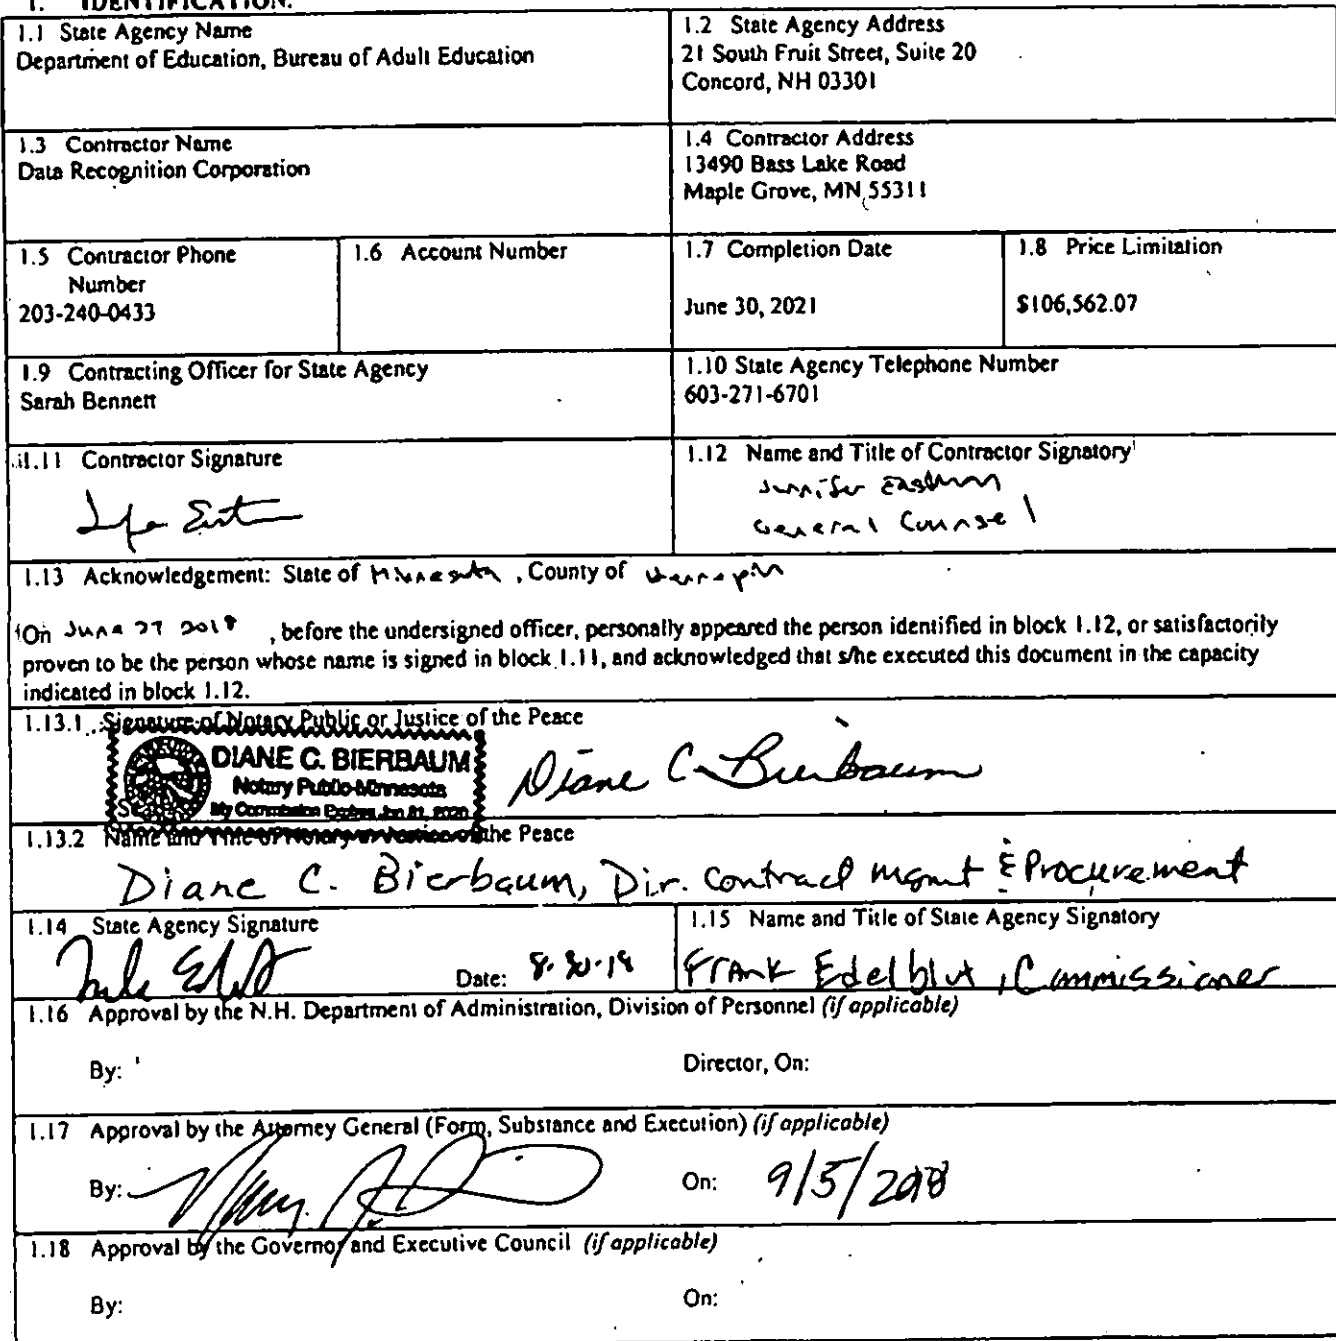 1. IDENTIFICATION.
1.1 State Agency Name
Department of Education, Bureau of Adult Education
1.2 State Agency Address
21 South Fruit Street, Suite 20
Concord, NH 03301
1.3 Contractor Name
Data Recognition Corporation
1.4 Contractor Address
13490 Bass Lake Road
Maple Grove, MN 55311
1.5 Contractor Phone
Number
203-240-0433
1.6 Account Number
1.7 Completion Date
June 30, 2021
1.8 Price Limitation
$106,562.07
1.9 Contracting Officer for State Agency
Sarah Bennett
1.10 State Agency Telephone Number
603-271-6701
1.11 Contractor Signature
1.12 Name and Title of Contractor Signatory
General Counsel
1.13 Acknowledgement: State of Minnesota , County of Hennepin
On June 27 2018 , before the undersigned officer, personally appeared the person identified in block 1.12, or satisfactorily
proven to be the person whose name is signed in block 1.11, and acknowledged that s/he executed this document in the capacity
indicated in block 1.12.
1.13.1 Signature of Notary Public or Justice of the Peace
DIANE C. BIERBAUM
Notary Public-Minnesota
My Commission Expires Jan 31, 2020
Diane C. Bierbaum
1.13.2 Name and Title of Notary or Justice of the Peace
Diane C. Bierbaum, Dir. Contract Mgmt & Procurement
1.14 State Agency Signature
Date:
1.15 Name and Title of State Agency Signatory
Frank Edelblut, Commissioner
1.16 Approval by the N.H. Department of Administration, Division of Personnel (if applicable)
By:
Director, On:
1.17 Approval by the Attorney General (Form, Substance and Execution) (if applicable)
By:
On: 9/5/2018
1.18 Approval by the Governor and Executive Council (if applicable)
By:
On: